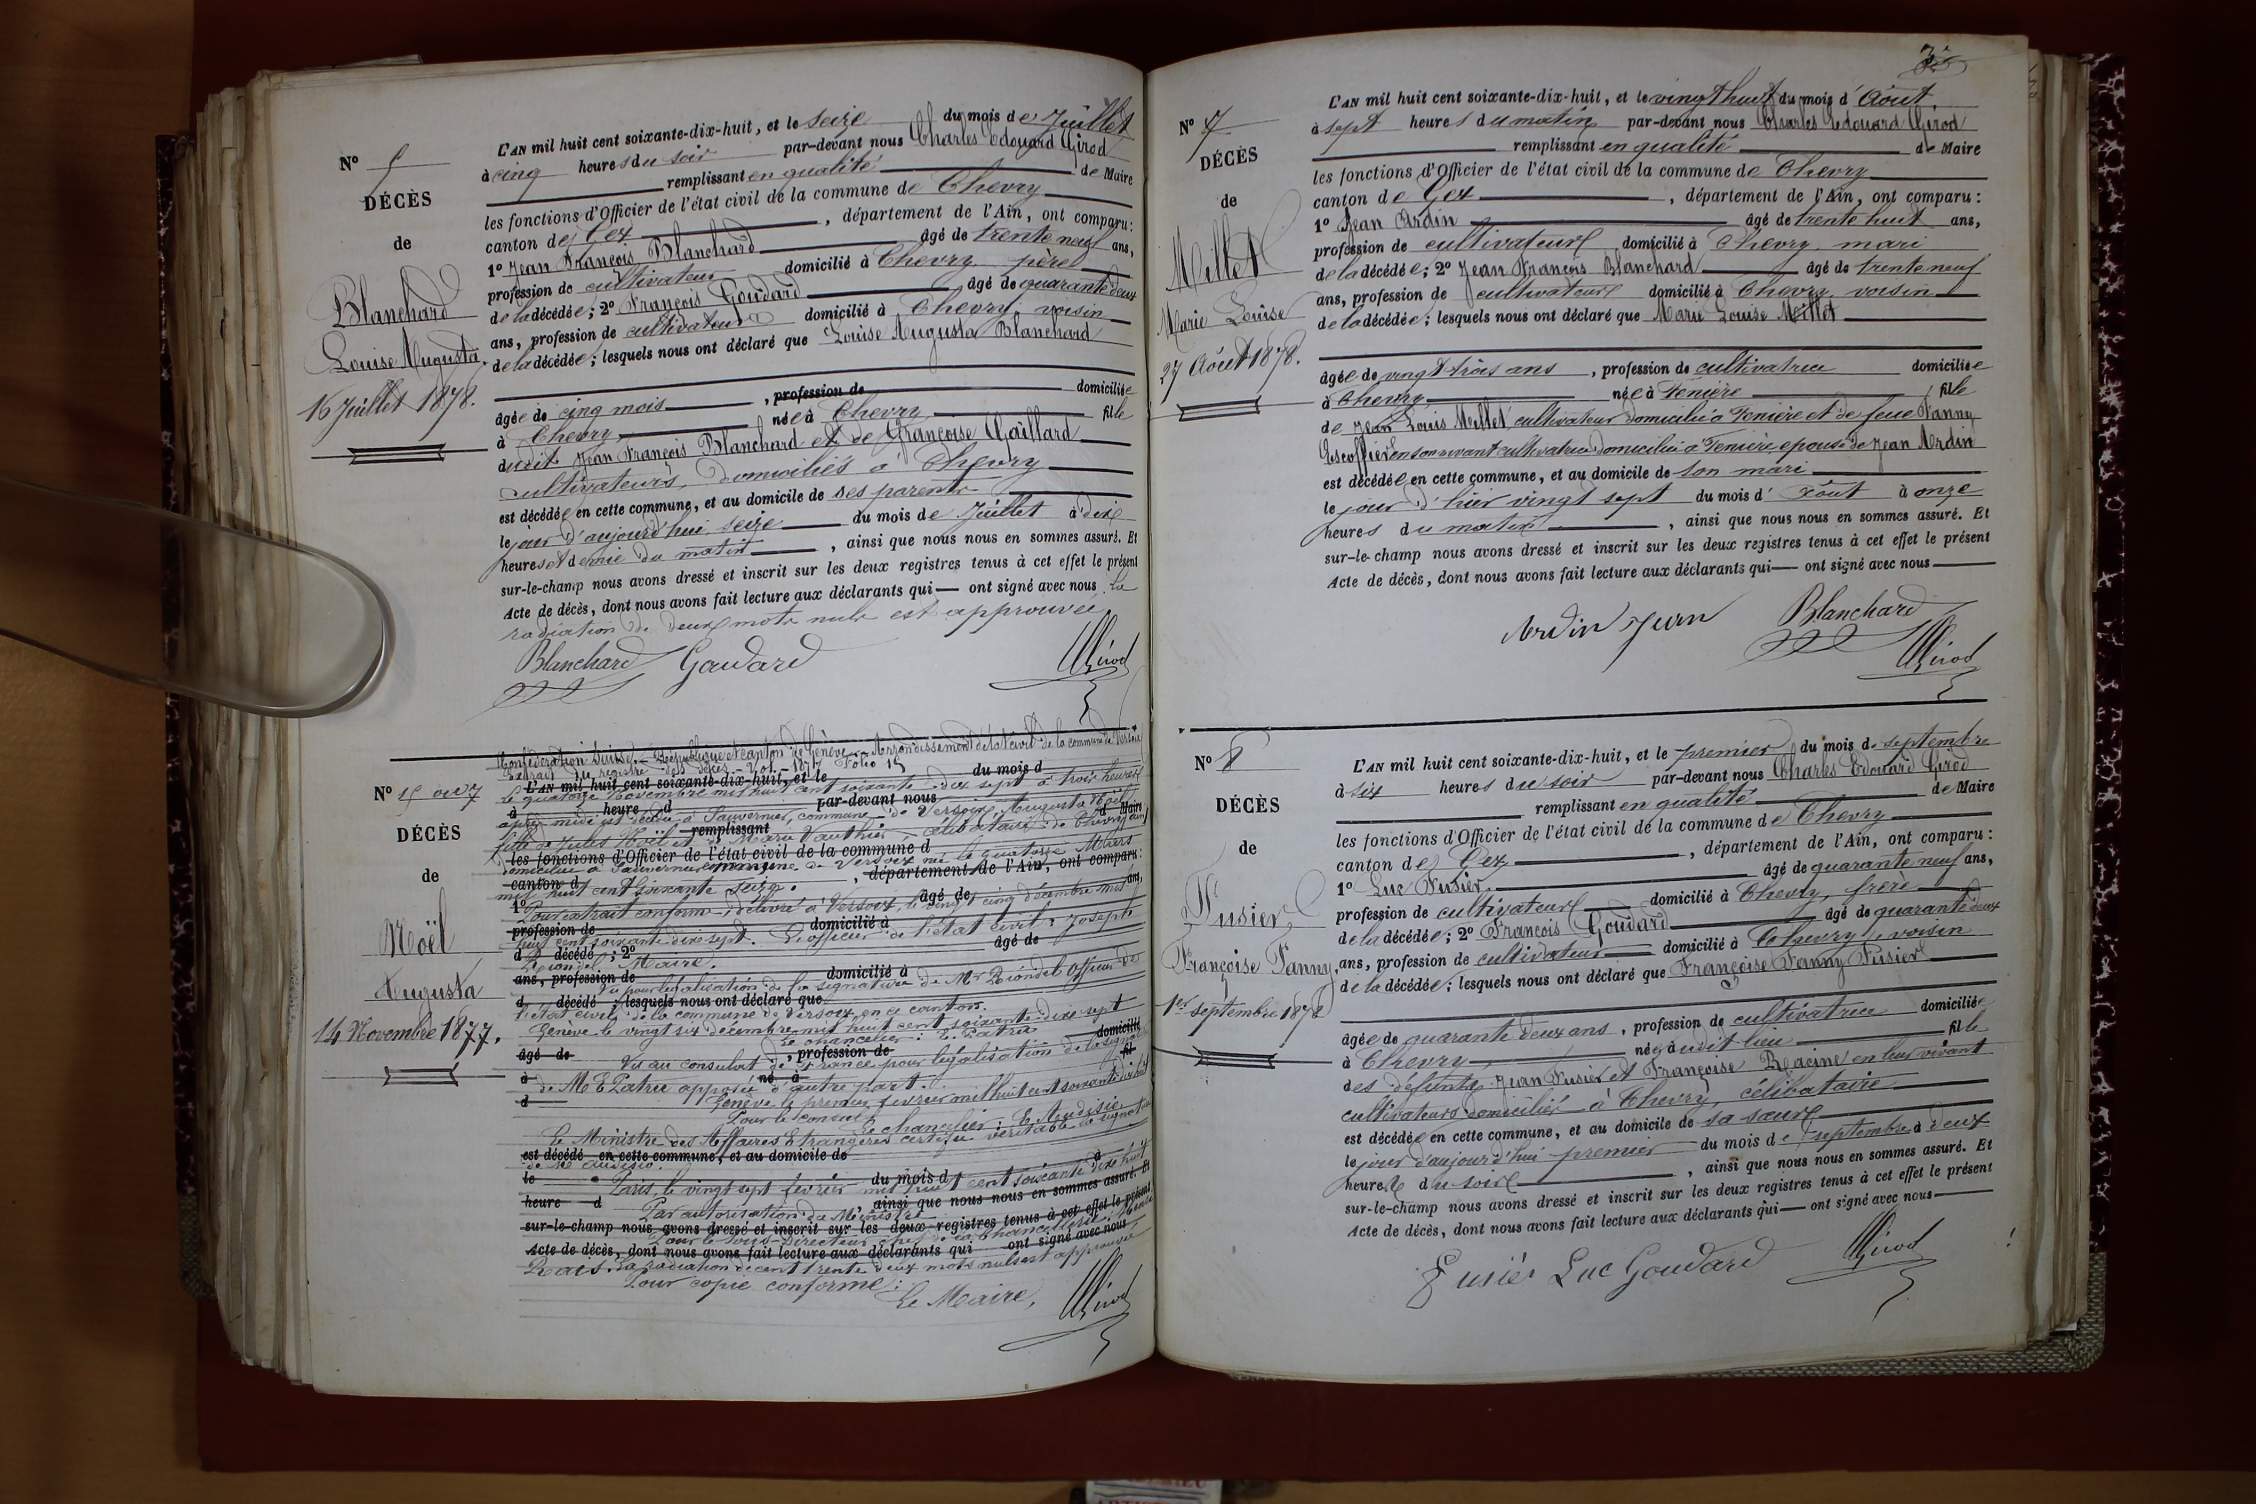 N° 5
DÉCÈS
de
Blanchard
Louise Augusta.
16 Juillet 1878.
L'AN mil huit cent soixante-dix-huit, et le seize du mois de Juillet
à cinq heures du soir par-devant nous Charles Edouard Girod
remplissant en qualité de Maire
les fonctions d'Officier de l'état civil de la commune de Chevry
canton de Gex, département de l'Ain, ont comparu:
1° Jean François Blanchard âgé de trente neuf ans,
profession de cultivateur domicilié à Chevry, père
de la décédée; 2° François Goudard âgé de quarante deux
ans, profession de cultivateur domicilié à Chevry, voisin
de la décédée; lesquels nous ont déclaré que Louise Augusta Blanchard
âgée de cinq mois, profession de domiciliée
à Chevry, née à Chevry fille
dudit Jean François Blanchard et de Françoise Gaillard
cultivateurs, domiciliés à Chevry
est décédée en cette commune, et au domicile de ses parents
le jour d'aujourd'hui seize du mois de Juillet à dix
heures et demie du matin, ainsi que nous nous en sommes assuré. Et
sur-le-champ nous avons dressé et inscrit sur les deux registres tenus à cet effet le présent
Acte de décès, dont nous avons fait lecture aux déclarants qui — ont signé avec nous. La
radiation de deux mots nuls est approuvée
Blanchard Goudard Girod
N° 15 ou 7
DÉCÈS
de
Noël
Augusta
14 Novembre 1877.
Confédération Suisse. République et canton de Genève. Arrondissement de l'état civil de la commune de Versoix
Extrait du registre des décès. Vol. 1877 Folio 15
L'AN mil huit cent soixante-dix-huit, et le du mois d
Le quatorze Novembre mil huit cent soixante dix sept à trois heures
à heure d par-devant nous
après midi est décédée à Sauvernier, commune de Versoix, Augusta Noël
remplissant d Maire
fille de Jules Noël et de Marie Vauthier célibataire de Chevry (Ain)
les fonctions d'Officier de l'état civil de la commune d
domiciliée à Sauvernier commune de Versoix née le quatorze Mars
canton d, département de l'Ain, ont comparu:
mil huit cent soixante seize.
1° âgé de ans,
Pour extrait conforme, délivré à Versoix, le vingt cinq décembre mil
profession de domicilié à
huit cent soixante dix sept. L'officier de l'état civil: Joseph
d décédé; 2° âgé de
Riondel Maire.
ans, profession de domicilié à
Vu pour légalisation de la signature de Mr Riondel officier de
d décédé; lesquels nous ont déclaré que
l'état civil de la commune de Versoix en ce canton.
Genève le vingt six décembre mil huit cent soixante dix sept
Le chancelier: E. Patru
âgé de, profession de domicilié
Vu au consulat de France pour légalisation de la signature
à né à fil
de M E Patru apposée d'autre part.
d Genève le premier février mil huit cent soixante dix huit
Pour le consul:
Le chancelier: E. Audisio
Le Ministre des Affaires Etrangères certifie véritable la signature
est décédé en cette commune, et au domicile de
de Mr Audisio.
le du mois d à
Paris, le vingt sept février mil huit cent soixante dix huit
heure d, ainsi que nous nous en sommes assuré. Et
Par autorisation du Ministre
sur-le-champ nous avons dressé et inscrit sur les deux registres tenus à cet effet le présent
Pour le sous-Directeur chef de la Chancellerie:
Acte de décès, dont nous avons fait lecture aux déclarants qui ont signé avec nous
La radiation de cent trente deux mots nuls est approuvée
Pour copie conforme:
Le Maire, Girod
3
N° 7
DÉCÈS
de
Millet
Marie Louise
27 Août 1878.
L'AN mil huit cent soixante-dix-huit, et le vingt huit du mois d'Août.
à sept heures du matin par-devant nous Charles Edouard Girod
remplissant en qualité de Maire
les fonctions d'Officier de l'état civil de la commune de Chevry
canton de Gex, département de l'Ain, ont comparu:
1° Jean Ardin âgé de trente huit ans,
profession de cultivateur domicilié à Chevry, mari
de la décédée; 2° Jean François Blanchard âgé de trente neuf
ans, profession de cultivateur domicilié à Chevry, voisin
de la décédée; lesquels nous ont déclaré que Marie Louise Millet
âgée de vingt trois ans, profession de cultivatrice domiciliée
à Chevry née à Fenière fille
de Jean Louis Millet cultivateur domicilié à Fenière et de feue Fanny
Escoffier en son vivant cultivatrice domiciliée à Fenière, epouse de Jean Ardin
est décédée en cette commune, et au domicile de son mari
le jour d'hier vingt sept du mois d'Août à onze
heures du matin, ainsi que nous nous en sommes assuré. Et
sur-le-champ nous avons dressé et inscrit sur les deux registres tenus à cet effet le présent
Acte de décès, dont nous avons fait lecture aux déclarants qui — ont signé avec nous
Ardin Jean Blanchard
Girod
N° 8
DÉCÈS
de
Fusier
Françoise Fanny,
1er septembre 1878
L'AN mil huit cent soixante-dix-huit, et le premier du mois de septembre
à six heures du soir par-devant nous Charles Edouard Girod
remplissant en qualité de Maire
les fonctions d'Officier de l'état civil de la commune de Chevry
canton de Gex, département de l'Ain, ont comparu:
1° Luc Fusier, âgé de quarante neuf ans,
profession de cultivateur domicilié à Chevry, frère
de la décédée; 2° François Goudard âgé de quarante deux
ans, profession de cultivateur domicilié à Chevry, voisin
de la décédée; lesquels nous ont déclaré que Françoise Fanny Fusier
âgée de quarante deux ans, profession de cultivatrice domiciliée
à Chevry, née audit lieu fille
des défunts Jean Fusier et Françoise Racine en leur vivant
cultivateurs domiciliés à Chevry, célibataire
est décédée en cette commune, et au domicile de sa sœur
le jour d'aujourd'hui premier du mois de septembre à deux
heures du soir, ainsi que nous nous en sommes assuré. Et
sur-le-champ nous avons dressé et inscrit sur les deux registres tenus à cet effet le présent
Acte de décès, dont nous avons fait lecture aux déclarants qui — ont signé avec nous
Fusier Luc Goudard Girod